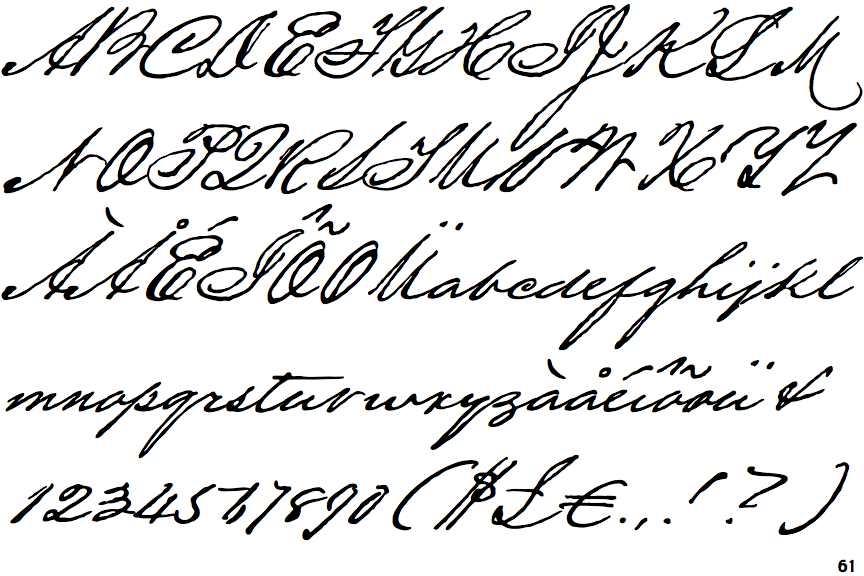 ABCDEFGHIJKLM
NOPQRSTUVWXYZ
ÀÅÉÎÕØÜabcdefghijkl
mnopqrstuvwxyzàåéîõøü&
1234567890($£€.,.!?)
61